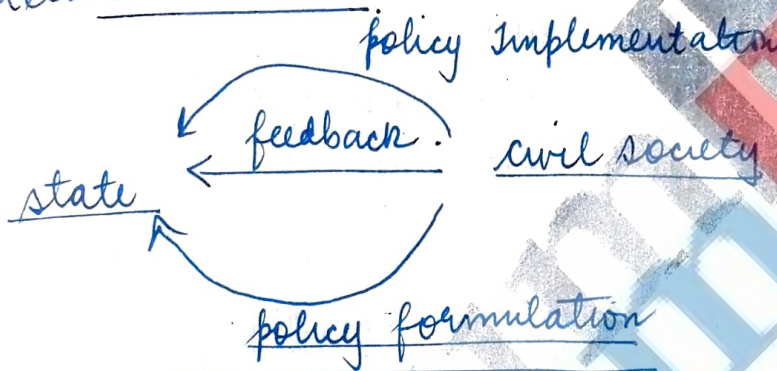 policy Implementation
feedback.
civil society
state
policy formulation